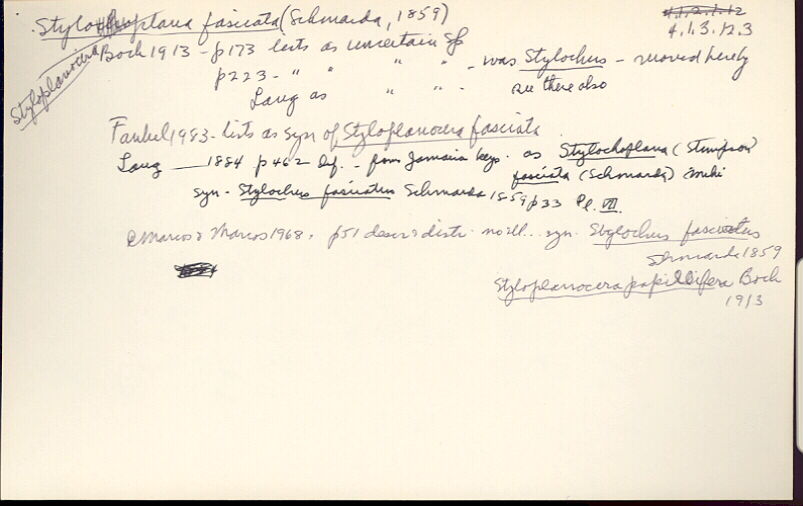 Stylochoplana fasciata (Schmarda, 1859)
4.1.2.1.12
4.1.3.12.3
Styloplanocera
Bock 1913 - p173 lists as uncertain sp
p223 - " " " " - was Stylochus - moved hereby
Lang as " " " see there also
Faubel 1983 - lists as syn of Styloplanocera fasciata
Lang 1884 p462 Df. - from Jamaica keys. as Stylochoplana (Stimpson)
fasciata (Schmarda) mihi
syn - Stylochus fasciatus Schmarda 1859 p33 Pl. VII
Marcus & Marcus 1968, p51 descr & distr. no ill... syn. Stylochus fasciatus
Schmarda 1859
Styloplanocera papillifera Bock
1913